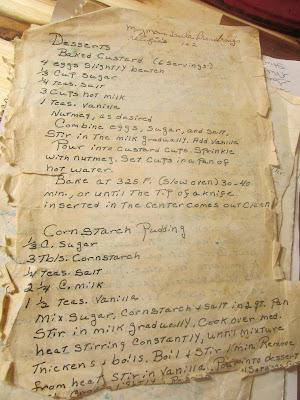 Desserts
Baked Custard (6 servings)
4 eggs slightly beaten
1/3 Cup Sugar
1/4 Teas. Salt
3 Cups hot milk
1 Teas. Vanilla
Nutmeg, as desired
Combine eggs, Sugar, and Salt.
Stir in The milk gradually. Add Vanilla
Pour into custard cups. Sprinkle
with nutmeg. Set cups in a Pan of
hot water.
Bake at 325 F. (Slow oven) 30-40
min, or until The Tip of a knife
inserted in the center comes out clean
Cornstarch Pudding
1/3 C. Sugar
3 Tbls. Cornstarch
1/4 Teas. Salt
2 1/4 C. Milk
1 1/2 Teas. Vanilla
Mix Sugar, Cornstarch & Salt in 2 qt. Pan
Stir in milk gradually, Cook over med.
heat stirring constantly, until mixture
Thickens & boils. Boil & Stir 1 min. Remove
from heat Stir in Vanilla. Pour into dessert